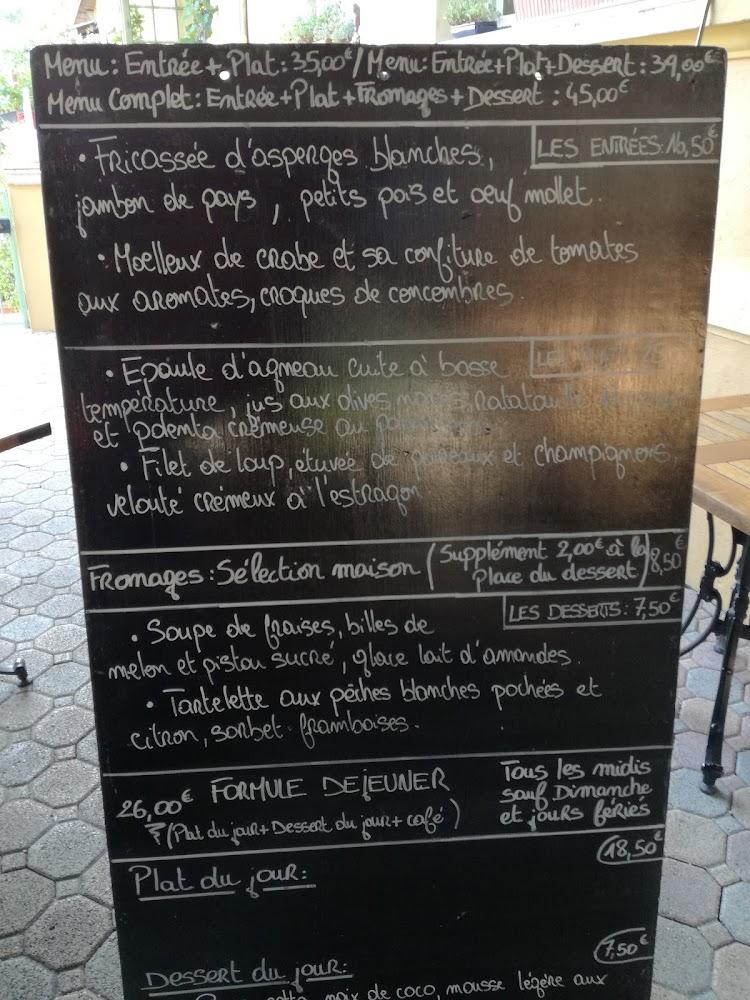 Menu: Entrée + Plat: 35,00€ / Menu: Entrée+Plat+Dessert: 39,00€
Menu Complet: Entrée+Plat+Fromages+Dessert: 45,00€
LES ENTRÉES: 16,50€
• Fricassée d'asperges blanches,
jambon de pays, petits pois et oeuf mollet.
• Moelleux de crabe et sa confiture de tomates
aux aromates, croques de concombres
• Epaule d'agneau cuite à basse
température, jus aux olives noires, Ratatouille
et polenta crémeuse au
• Filet de loup, étuvée de poireaux et champignons,
velouté crémeux à l'estragon
Fromages: Sélection maison (Supplément 2,00€ à la
Place du dessert) 8,50€
LES DESSERTS: 7,50€
• Soupe de fraises, billes de
melon et pistou sucré, glace lait d'amandes.
• Tartelette aux pêches blanches pochées et
citron, sorbet framboises.
26,00€ FORMULE DEJEUNER
(Plat du jour + Dessert du jour + café)
Tous les midis
sauf Dimanche
et jours fériés
18,50€
Plat du jour:
7,50€
Dessert du jour:
noix de coco, mousse légère aux